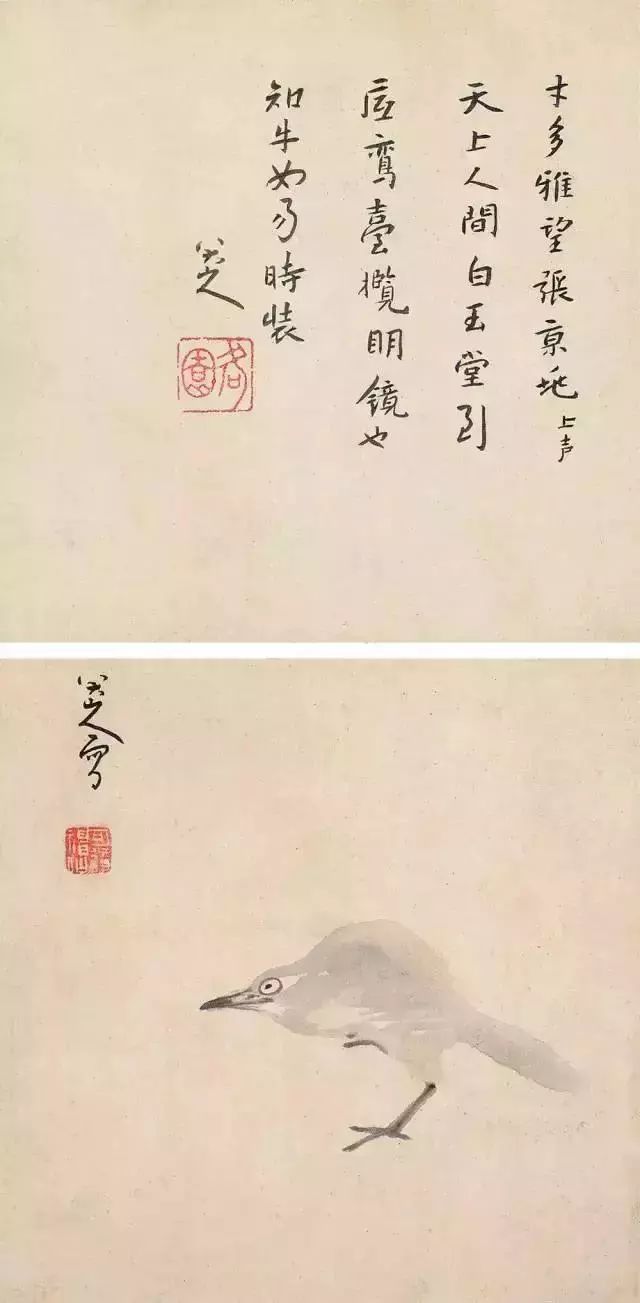 才多雅望張京垗上声
天上人間白玉堂到
底鸞臺攬明鏡也
知牛女易時裝
八大山人
八大山人寫